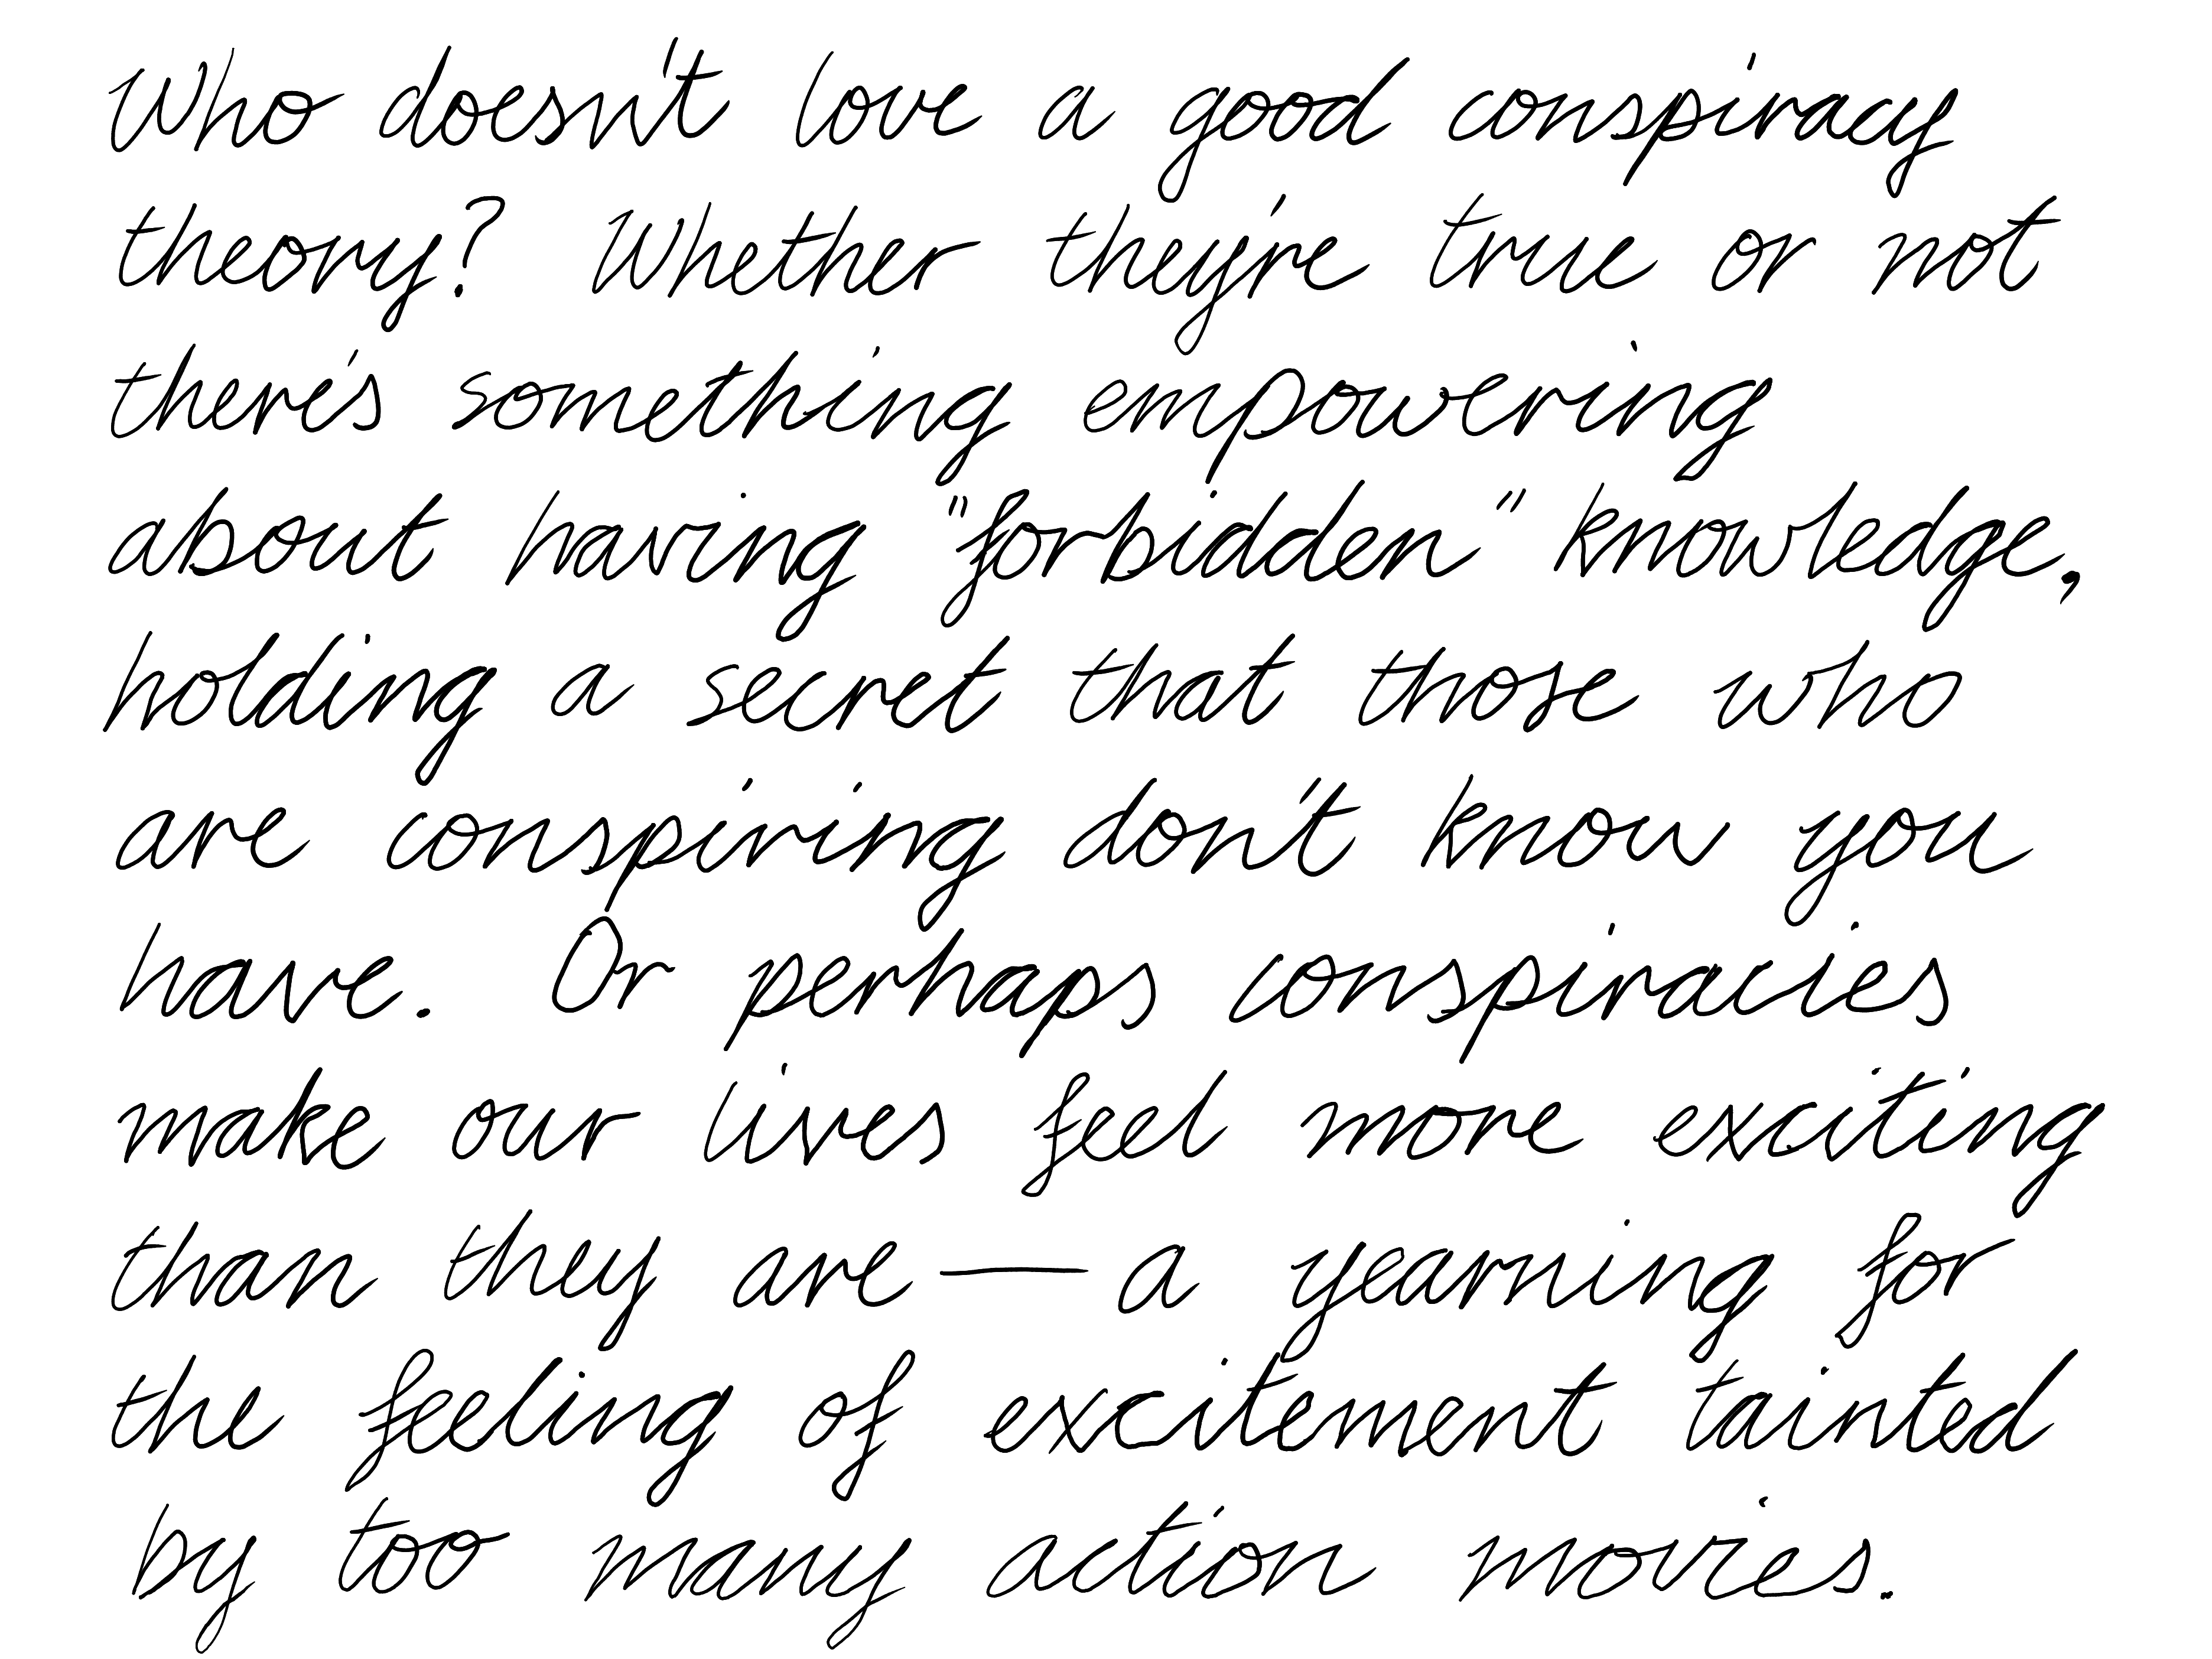 Who doesn't love a good conspiracy
theory? Whether they're true or not
there's something empowering
about having "forbidden" knowledge,
holding a secret that those who
are conspiring don't know you
have. Or perhaps conspiracies
make our lives feel more exciting
than they are — a yearning for
the feeling of excitement tainted
by too many action movies.